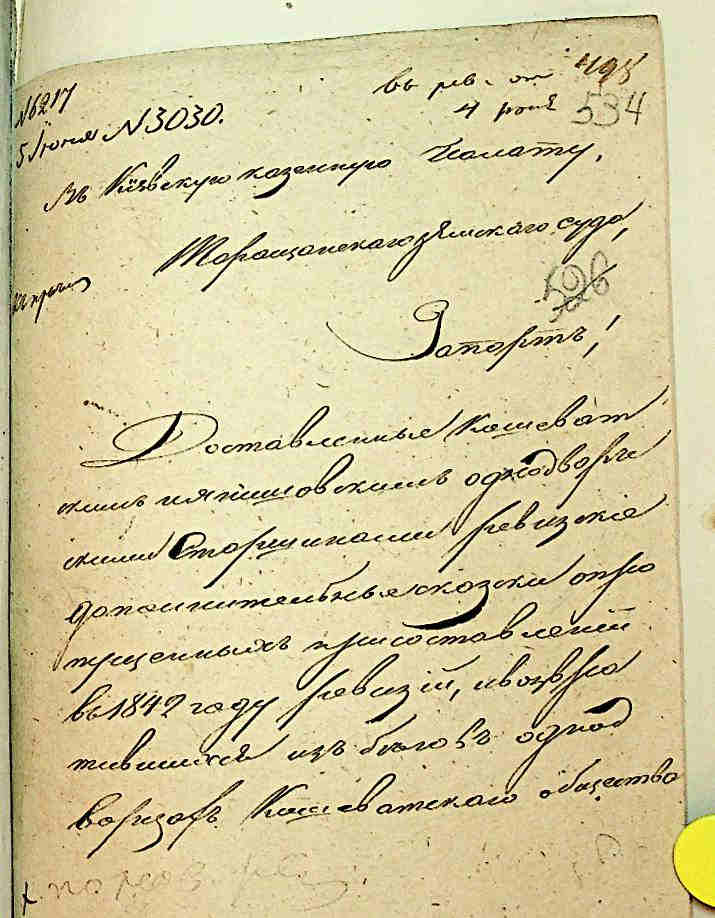 N6217
5 Июня N3030.
въ рев. от
495
534
Въ Кіевскую казенную Палату.
Таращанскаго земскаго суда,
Рапортъ!
Доставленные Кошеват
скимъ и одноворче
скими Старшинами ревизскіе
дополнительные сказки опро
пущенныхъ присоставленіи
въ 1842 году ревизіи, ивозвра
тившихся изъ беговъ однод
ворцахъ Кошеватскаго общества